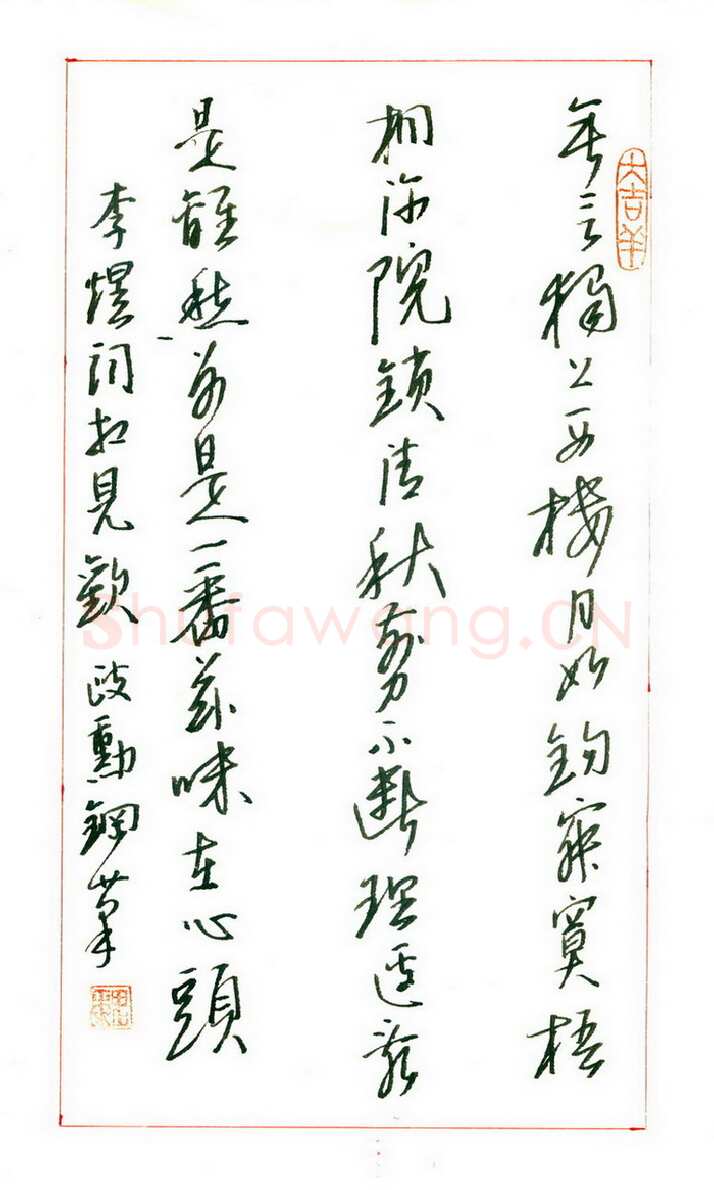 大吉羊
無言獨上西樓月如鈎寂寞梧
桐深院鎖清秋剪不斷理還亂
是離愁别是一番滋味在心頭
李煜詞相見歡 勳鋼筆
Shufawang.CN